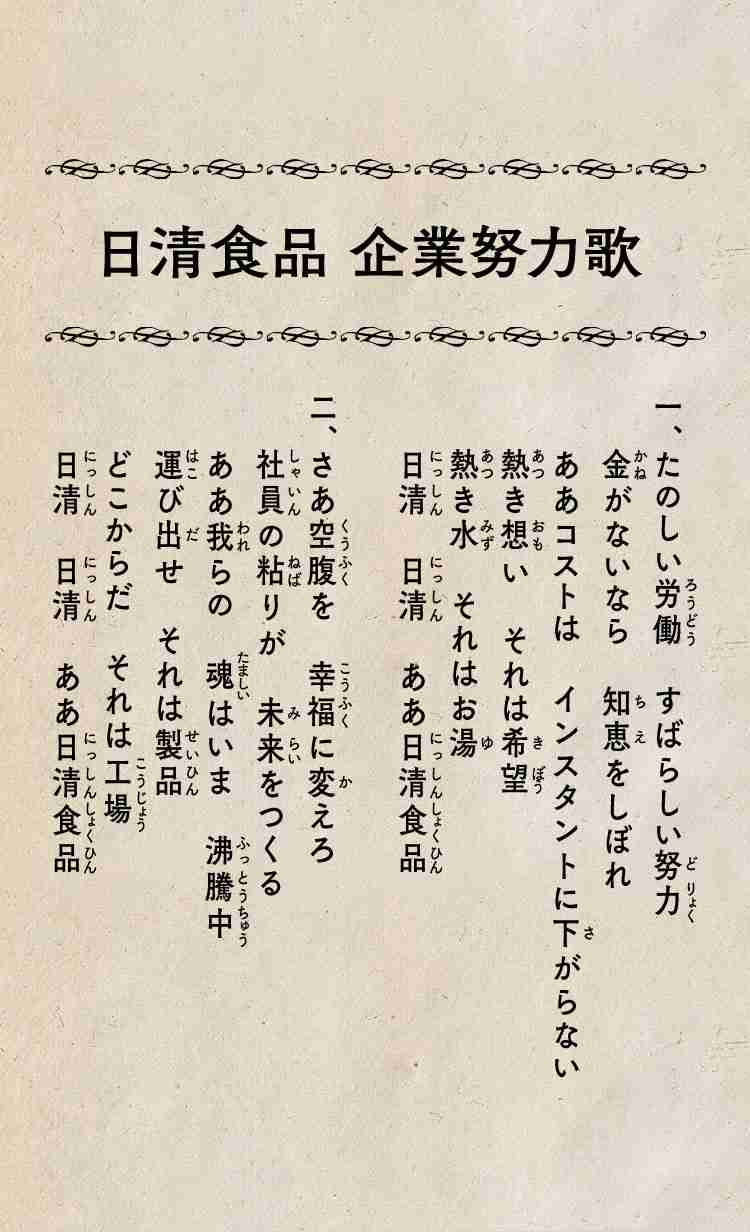 日清食品 企業努力歌
一、たのしい労働 すばらしい努力
金がないなら 知恵をしぼれ
ああコストは インスタントに下がらない
熱き想い それは希望
熱き水 それはお湯
日清 日清 ああ日清食品
二、さあ空腹を 幸福に変えろ
社員の粘りが 未来をつくる
ああ我らの 魂はいま 沸騰中
運び出せ それは製品
どこからだ それは工場
日清 日清 ああ日清食品